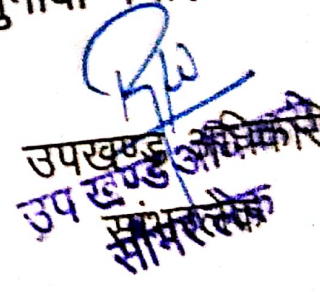 उपखण्ड अधिकारी
उप खण्ड अधिकारी
सांभरलेक
सांभरलेक